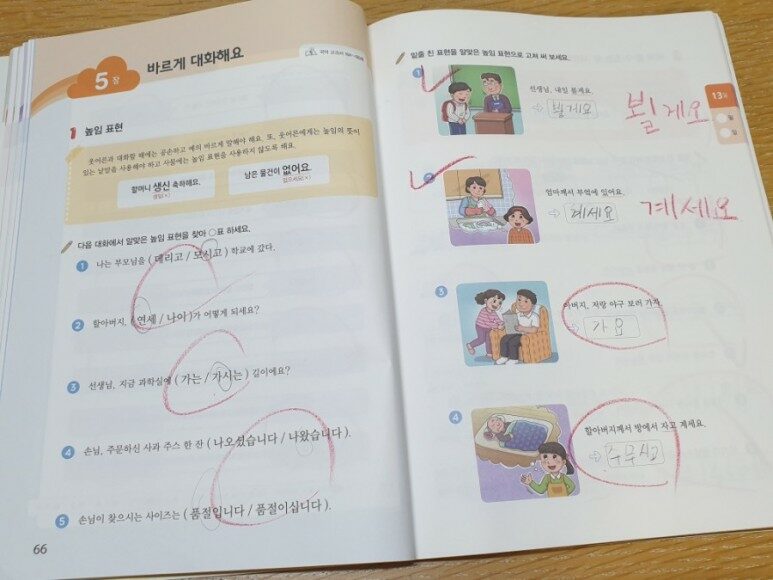 5장
바르게 대화해요
1 높임 표현
웃어른과 대화할 때에는 공손하고 예의 바르게 말해야 해요. 또, 웃어른에게는 높임의 뜻이
있는 낱말을 사용해야 하고 사물에는 높임 표현을 사용하지 않도록 해요.
할머니 생신 축하해요.
생일(×)
남은 물건이 없어요.
없으세요(×)
다음 대화에서 알맞은 높임 표현을 찾아 ○표 하세요.
1 나는 부모님을 ( 데리고 / 모시고 ) 학교에 갔다.
2 할아버지, ( 연세 / 나이 )가 어떻게 되세요?
3 선생님, 지금 과학실에 ( 가는 / 가시는 ) 길이에요?
4 손님, 주문하신 사과 주스 한 잔 ( 나오셨습니다 / 나왔습니다 ).
5 손님이 찾으시는 사이즈는 ( 품절입니다 / 품절이십니다 ).
66
밑줄 친 표현을 알맞은 높임 표현으로 고쳐 써 보세요.
13일
월
일
1 선생님, 내일 볼게요.
뵐게요
2 엄마께서 부엌에 있어요.
계세요
3 아버지, 저랑 야구 보러 가자.
가요
4 할아버지께서 방에서 자고 계세요.
주무시고